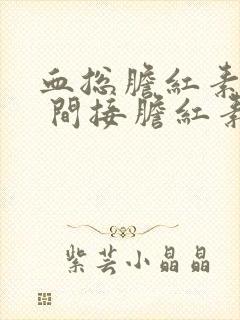 血総膽紅素
間接膽紅素
紫芸小晶晶